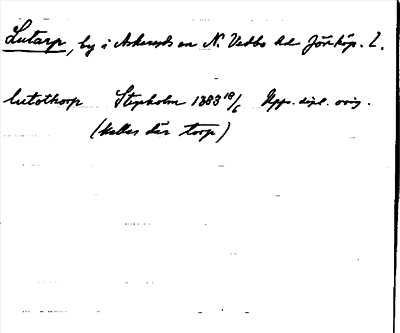 Lutarp, by i Askeryds sn N. Vedbo hd Jönköp. l.
lutothorp Stegholm 1383 18/6 Upps. dipl. orig.
(kallas där torp)